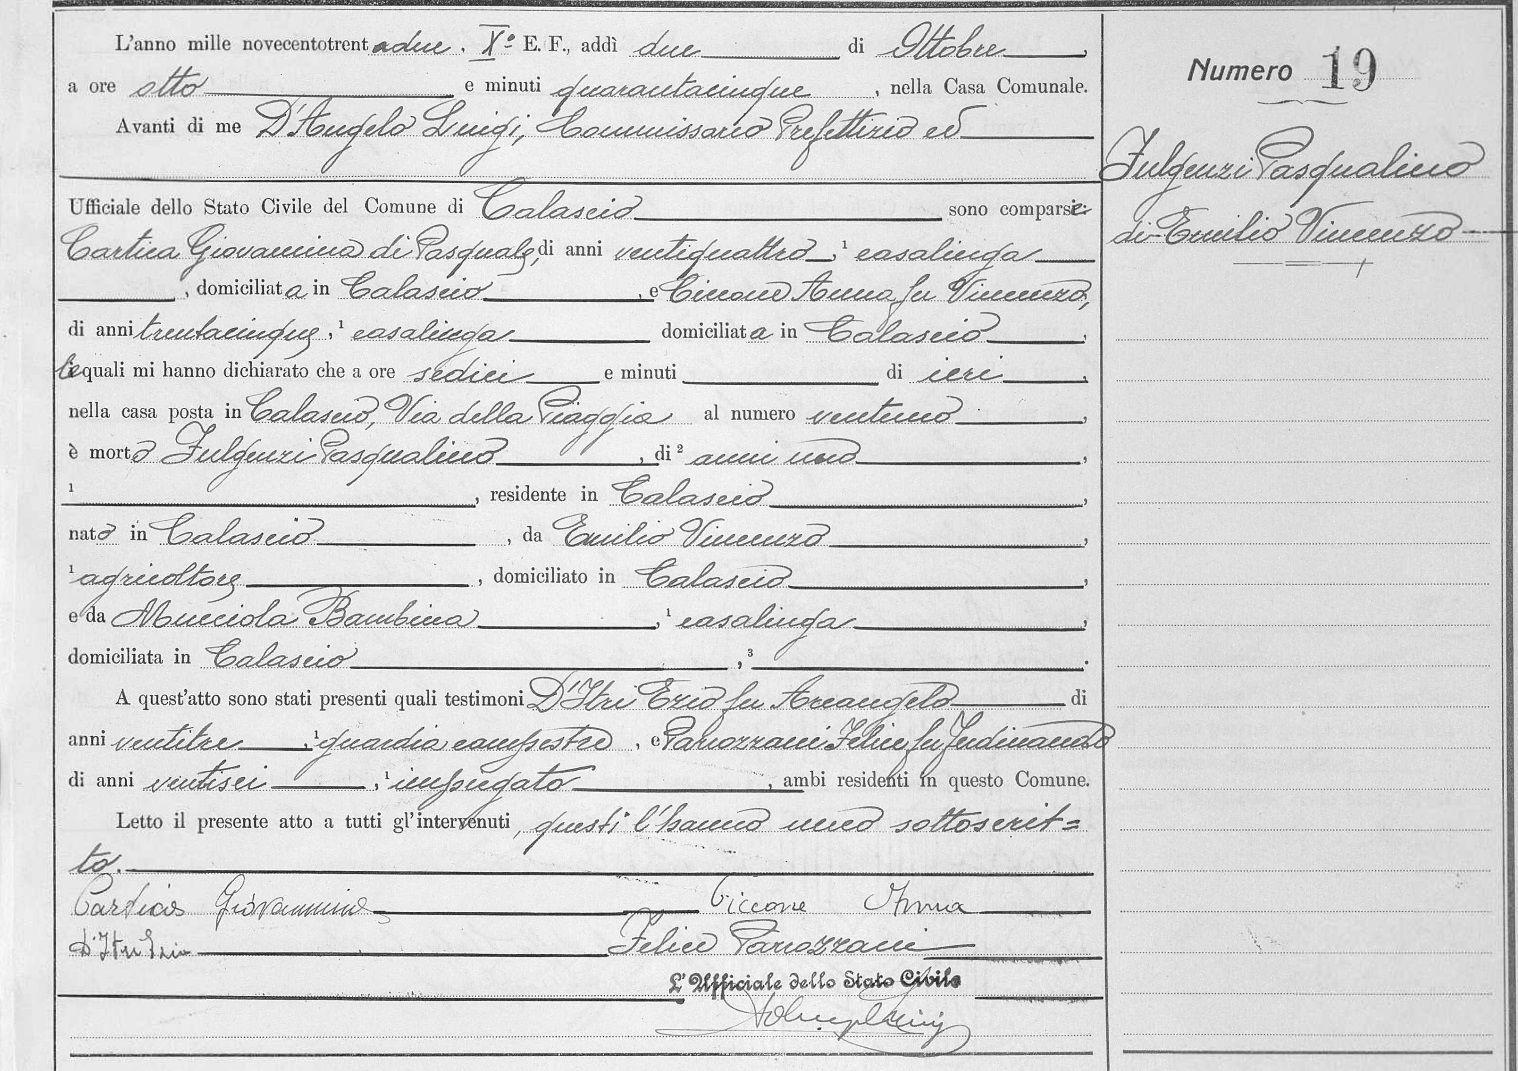 L'anno mille novecentotrentadue. X° E. F., addì due di Ottobre,
a ore otto e minuti quarantacinque, nella Casa Comunale.
Avanti di me D'Angelo Luigi, Commissario Prefettizio ed
Ufficiale dello Stato Civile del Comune di Calascio sono comparse
Cartica Giovannina di Pasquale, di anni ventiquattro,¹ casalinga
, domiciliata in Calascio, e Ciccone Anna fu Vincenzo,
di anni trentacinque,¹ casalinga domiciliata in Calascio,
le quali mi hanno dichiarato che a ore sedici e minuti di ieri,
nella casa posta in Calascio, Via della Piaggia al numero ventuno,
è morto Fulgenzi Pasqualino, di² anni uno,
¹ , residente in Calascio,
nato in Calascio, da Emilio Vincenzo,
¹ agricoltore, domiciliato in Calascio,
e da Mucciola Bambina,¹ casalinga,
domiciliata in Calascio,³ .
A quest'atto sono stati presenti quali testimoni D'Itri Ezio fu Arcangelo di
anni ventitre,¹ guardia campestre, e Panozzani Felice fu Ferdinando
di anni ventisei,¹ impiegato, ambi residenti in questo Comune.
Letto il presente atto a tutti gl'intervenuti, questi l'hanno meco sottoscrit=
to.
Cardica Giovannina Ciccone Anna
D'Itri Ezio Felice Panozzani
L'Ufficiale dello Stato Civile
Numero 19
Fulgenzi Pasqualino
di Emilio Vincenzo